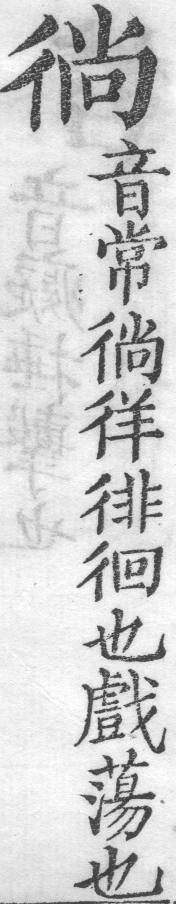 徜
音常徜徉徘徊也戲蕩也